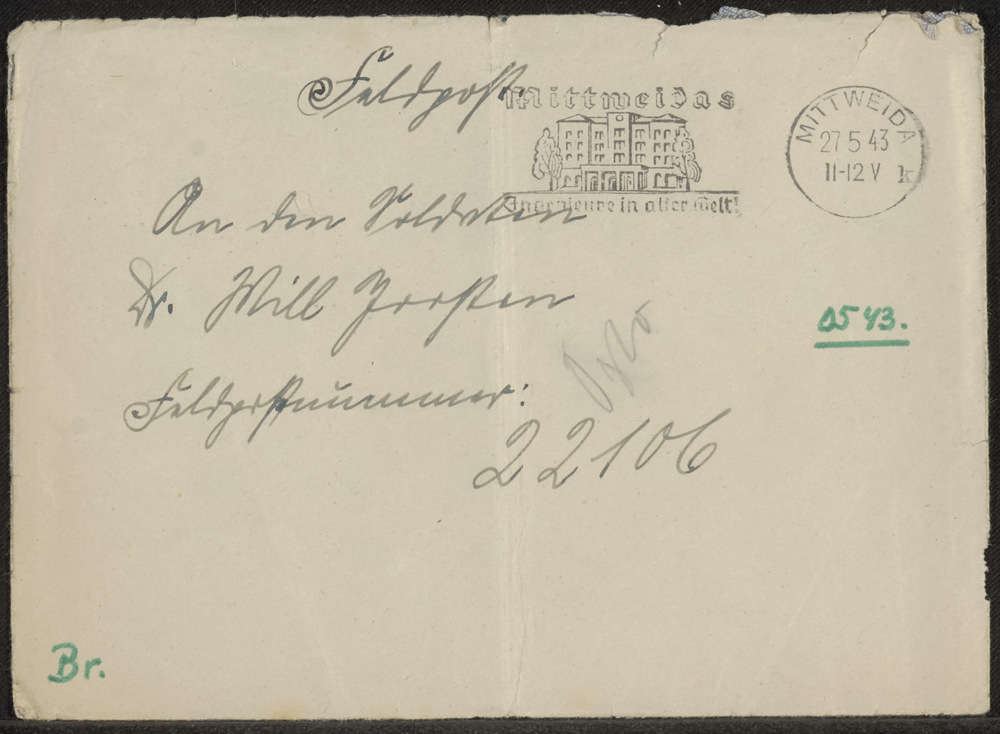 Feldpost.
Mittweidas
Ingenieure in aller Welt!
MITTWEIDA
27.5.43
11-12 V
k
An den Soldaten
Dr. Will
0543.
Feldpostnummer:
22106
Br.